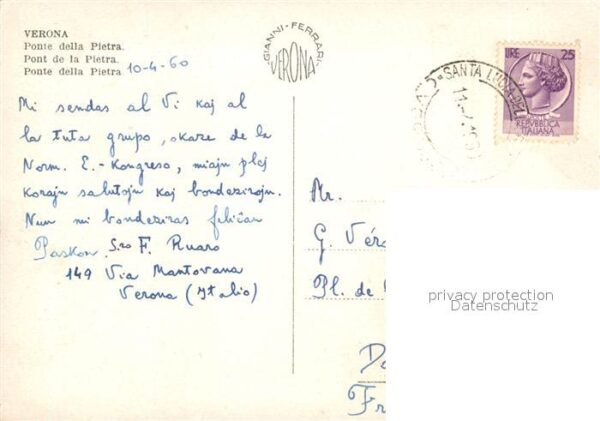 VERONA
Ponte della Pietra.
Pont de la Pietra.
Ponte della Pietra
10-4-60
GIANNI - FERRARI
VERONA
SANTA LUCIA DEL
LIRE 25
REPVBBLICA
ITALIANA
Mi sendas al Vi kaj al
la tuta grupo, okaze de la
Norm. E.-Kongreso, miajn plej
korajn salutojn kaj bondezirojn.
Nun mi bondeziras feliĉan
Paskon. S-ro F. Ruaro
149 Via Mantovana
Verona (Italio)
Mr.
G. Vér
Pl. de
Fr
privacy protection
Datenschutz